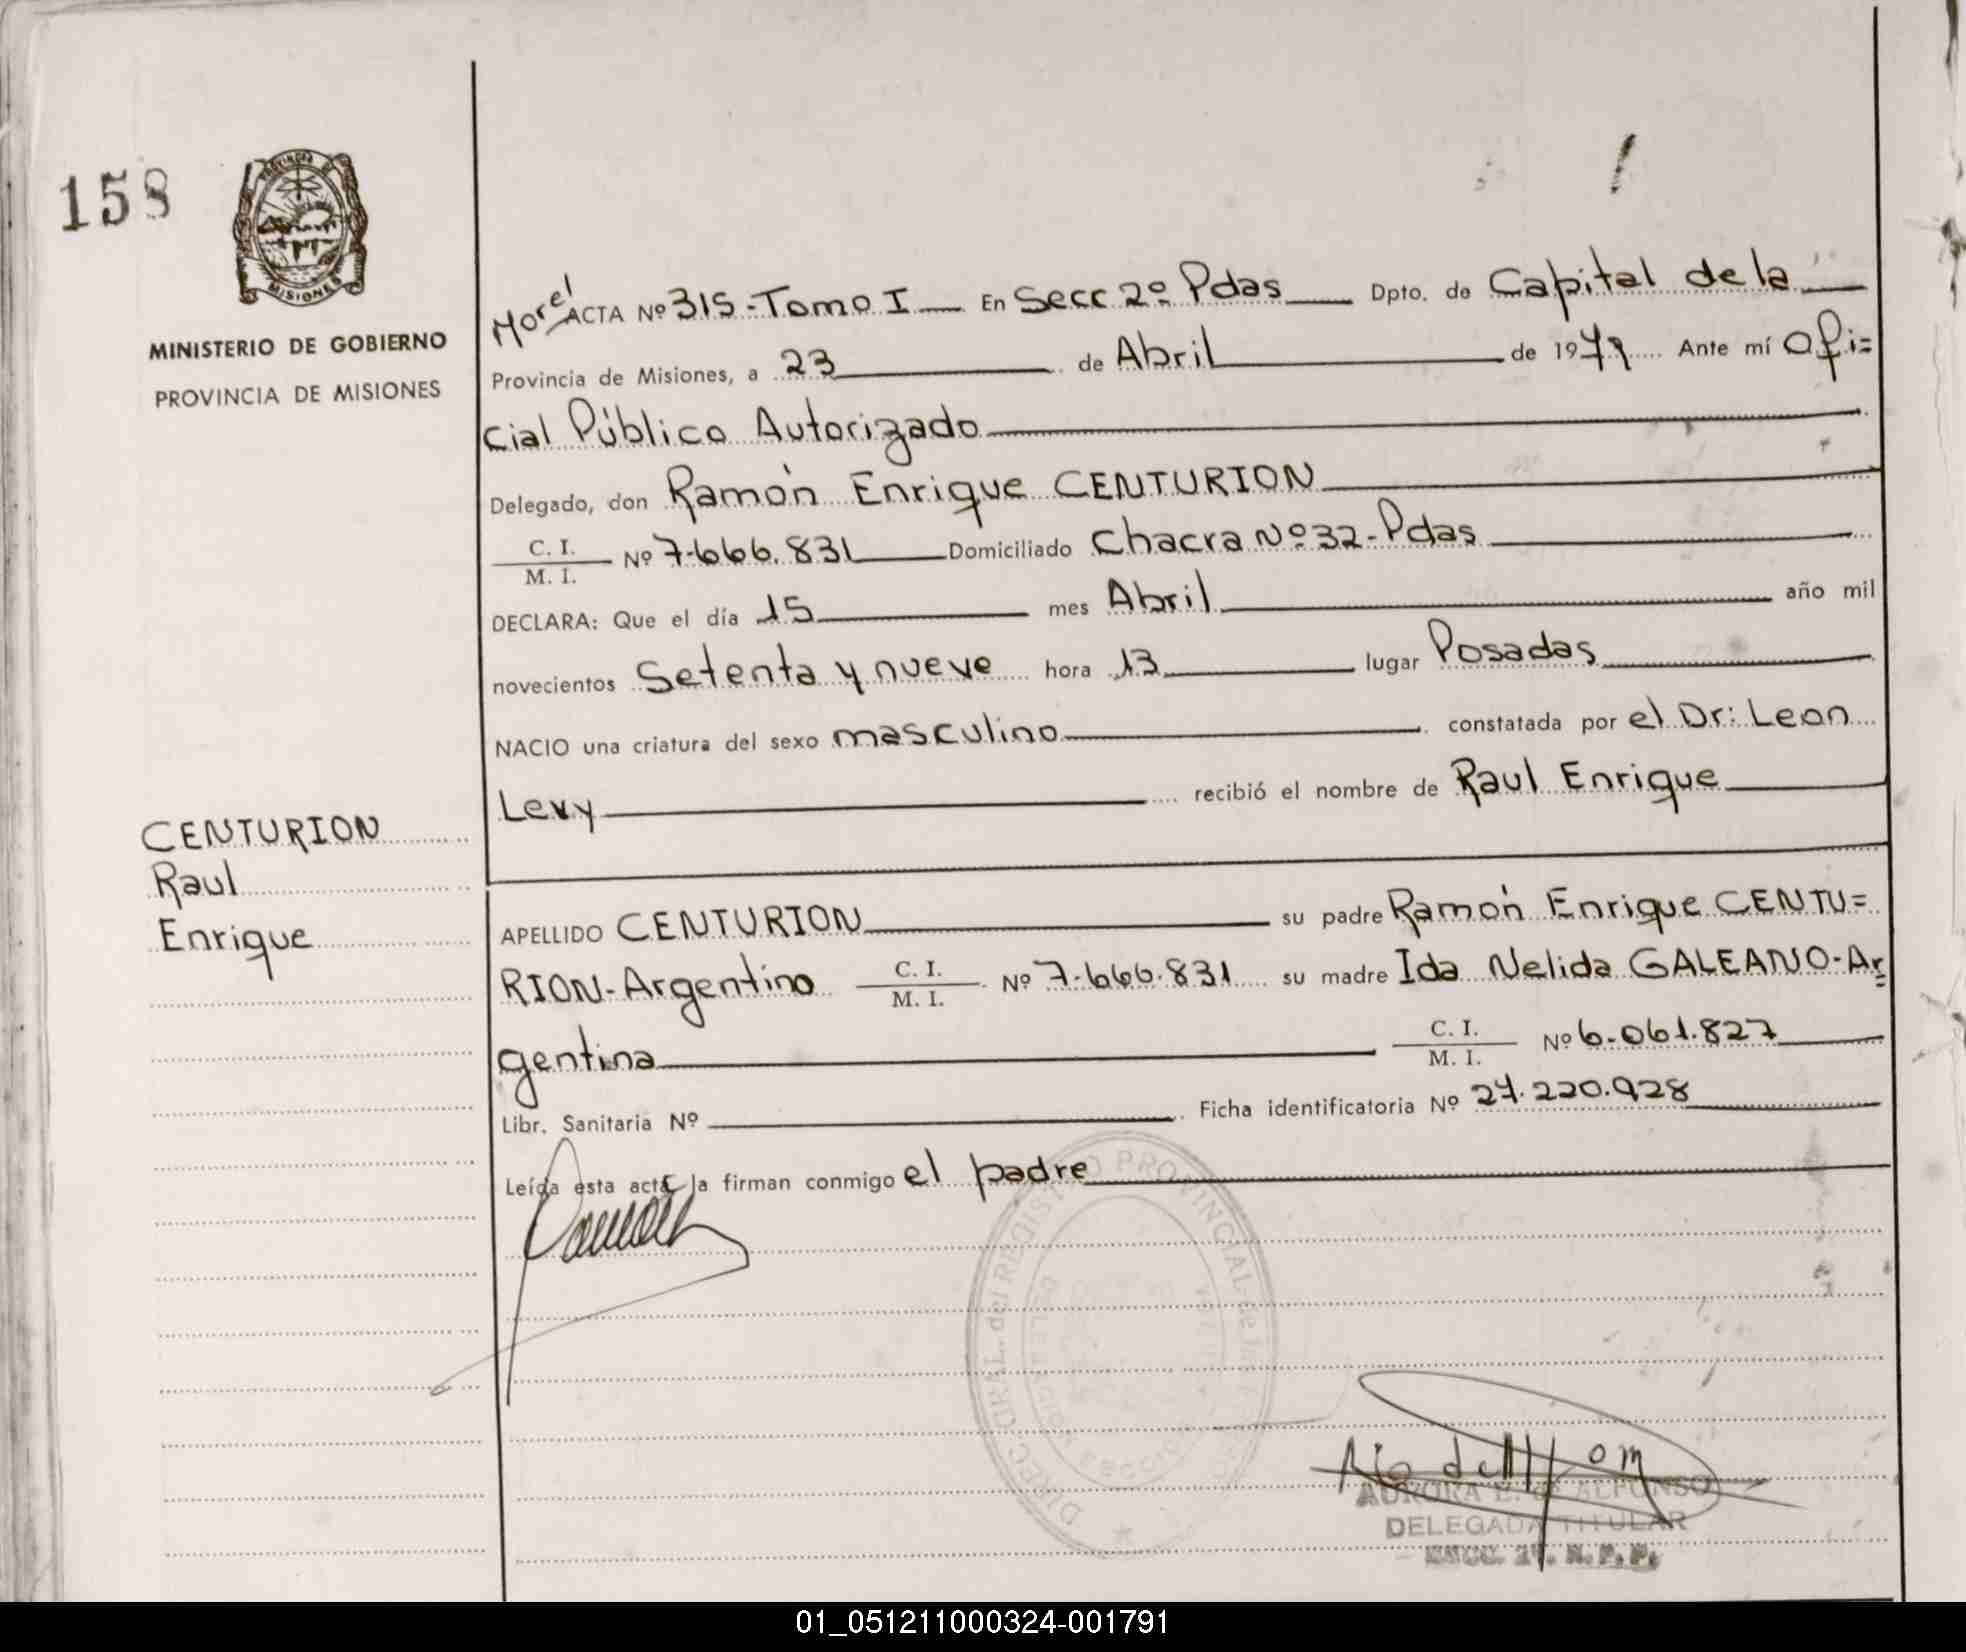 158
PROVINCIA D
MISIONES
MINISTERIO DE GOBIERNO
PROVINCIA DE MISIONES
CENTURION
Raul
Enrique
Morel ACTA Nº 315-Tomo I En Secc 2º Pdas Dpto. de Capital de la
Provincia de Misiones, a 23 de Abril de 1979 Ante mí Ofi=
cial Público Autorizado
Delegado, don Ramón Enrique CENTURION
C. I.
M. I. Nº 7.666.831 Domiciliado Chacra Nº 32-Pdas
DECLARA: Que el día 15 mes Abril año mil
novecientos Setenta y nueve hora 13 lugar Posadas
NACIO una criatura del sexo masculino constatada por el Dr: Leon
Levy recibió el nombre de Raul Enrique
APELLIDO CENTURION su padre Ramón Enrique CENTU=
RION-Argentino C. I. M. I. Nº 7.666.831 su madre Ida Nelida GALEANO-Ar=
gentina C. I. M. I. Nº 6.061.827
Libr. Sanitaria Nº Ficha identificatoria Nº 27.220.928
Leída esta acta la firman conmigo el padre
DIREC. GRAL. del REGISTRO PROVINCIAL de las
DELEGACION SECCION
AURORA E. de ALFONSO
DELEGADA TITULAR
SECC. 2ª. R. P. P.
01_051211000324-001791